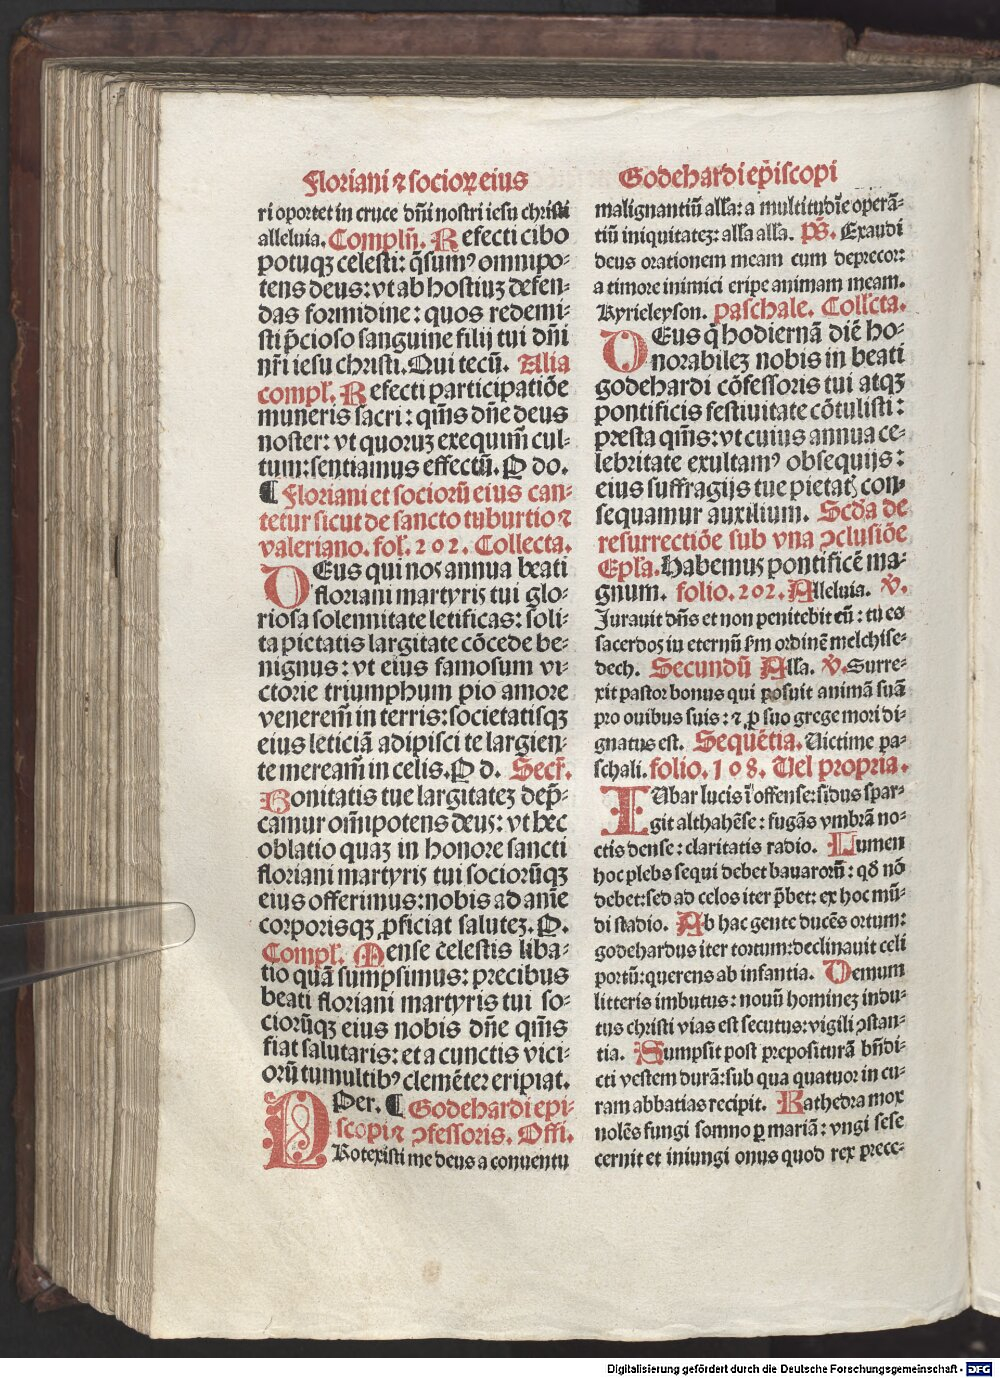 Floriani ⁊ socioꝝ eius
ri oportet in cruce dñi nostri iesu christi
alleluia. Complñ. Refecti cibo
potuqꝫ celesti: q̃sumꝰ omnipo-
tens deus: vt ab hostiuꝫ defen-
das formidine: quos redemi-
sti p̃cioso sanguine filij tui dñi
nr̃i iesu christi. Qui tecũ. Alia
compl̃. Refecti participatiõe
muneris sacri: qm̃s dñe deus
noster: vt quoruꝫ exequim̃ cul-
tum: sentiamus effectũ. P do.
¶ Floriani et sociorũ eius can-
tetur sicut de sancto tyburtio ⁊
valeriano. fol. 202. Collecta.
DEus qui nos annua beati
floriani martyris tui glo-
riosa solennitate letificas: soli-
ta pietatis largitate cõcede be-
nignus: vt eius famosum vi-
ctorie triumphum pio amore
venerem̃ in terris: societatisqꝫ
eius leticiã adipisci te largien-
te meream̃ in celis. P d. Secr̃.
Bonitatis tue largitateꝫ dep̃-
camur om̃ipotens deus: vt hec
oblatio quaꝫ in honore sancti
floriani martyris tui sociorũqꝫ
eius offerimus: nobis ad anie
corporisqꝫ ꝓficiat saluteꝫ. P.
Compl̃. Mense celestis liba-
tio quã sumpsimus: precibus
beati floriani martyris tui so-
ciorũqꝫ eius nobis dñe qm̃s
fiat salutaris: et a cunctis vici-
orũ tumultibꝰ clemẽter eripiat.
Per. ¶ Godehardi epi-
scopi ⁊ ꝯfessoris. Offi.
PRotexisti me deus a conuentu
Godehardi ep̃iscopi
malignantiũ alla: a multitudie operã-
tiũ iniquitateꝫ: alla alla. p̃s. Exaudi
deus orationem meam cum deprecor:
a timore inimici eripe animam meam.
Kyrieleyson. paschale. Collcta.
DEus q̃ hodiernã diẽ ho-
norabileꝫ nobis in beati
godehardi cõfessoris tui atqꝫ
pontificis festiuitate cõtulisti:
presta qm̃s: vt cuius annua ce-
lebritate exultamꝰ obsequijs:
eius suffragijs tue pietatꝭ con-
sequamur auxilium. Scda de
resurrectiõe sub vna ꝯclusiõe
Epla. Habemus pontificẽ ma-
gnum. folio. 202. Alleluia. ℣.
Jurauit dñs et non penitebit eũ: tu es
sacerdos in eternũ sm ordinẽ melchise-
dech. Secundũ Alla. ℣. Surre-
xit pastor bonus qui posuit animã suã
pro ouibus suis: ⁊ ꝓ suo grege mori di-
gnatus est. Sequẽtia. Uictime pa-
schali. folio. 108. Uel propria.
IUbar lucis i offense: sidus spar-
git althahẽse: fugãs vmbrã no-
ctis dense: claritatis radio. Lumen
hoc plebs sequi debet bauarorũ: qð nõ
debet: sed ad celos iter p̃bet: ex hoc mũ-
di stadio. Ab hac gente ducẽs ortum:
godehardus iter tortum: declinauit celi
portũ: querens ab infantia. Demum
litteris imbutus: nouũ homineꝫ indu-
tus christi vias est secutus: vigili ꝯstan-
tia. Sumpsit post prepositurã bñdi-
cti vestem durã: sub qua quatuor in cu-
ram abbatias recipit. Kathedra mox
nolẽs fungi somno ꝑ mariã: vngi sese
cernit et iniungi onus quod rex prece-
Digitalisierung gefördert durch die Deutsche Forschungsgemeinschaft - DFG